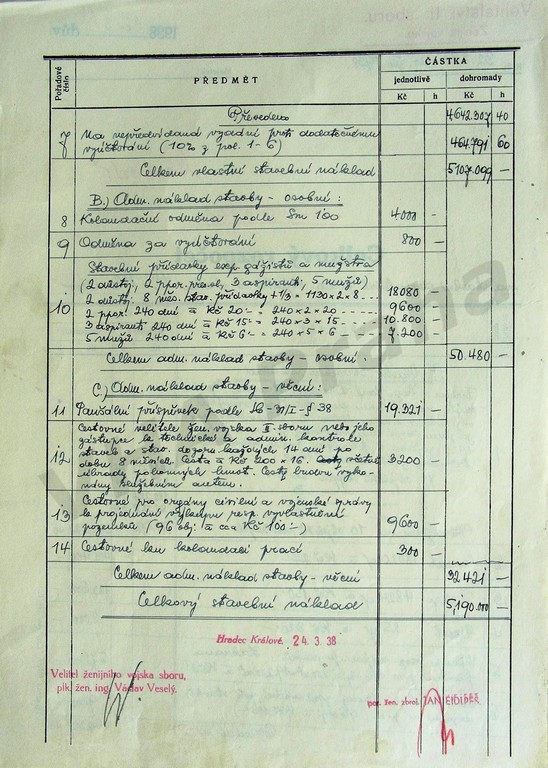 Pořadové číslo
PŘEDMĚT
ČÁSTKA
jednotlivě
dohromady
Kč h Kč h
Převedeno 4642.307 40
7 Na nepředvídaná vydání proti dodatečnému
vyúčtování (10% z pol. 1-6) 464.791 60
Celkem vlastní stavební náklad 5107.099 —
B.) Adm. náklad stavby - osobní:
8 Kolaudační odměna podle Sm 100 4000 —
9 Odměna za vyúčtování 800 —
Stavební přídavky exp. gážistů a mužstva
(2 důstoj., 2 ppor. pres.sl., 3 aspiranti, 5 mužů)
10
2 důstoj. 8 měs. stav. přídavky + 1/3 = 1130×2×8 18080 —
2 ppor. 240 dní à Kč 20.- = 240×2×20 9600 —
3 aspiranti 240 dní à Kč 15.- = 240×3×15 10.800 —
5 mužů 240 dní à Kč 6.- = 240×5×6 7.200 —
Celkem adm. náklad stavby - osobní. 50.480 —
C.) Adm. náklad stavby - věcní:
11 Paušální příspěvek podle Sb-VI/I-§ 38 19.321 —
Cestovné velitele žen. vojska II. sboru nebo jeho
zástupce k technické a admin. kontrole
staveb a stav. dozoru každých 14 dní po
12 dobu 8 měsíců. Cesta à Kč 200 × 16. včetně 3200 —
úhrady pohonných hmot. Cesty budou vyko-
nány služebním autem.
Cestovné pro orgány civilní a vojenské správy
13 ke projednání výkupu resp. vyvlastnění
pozemků (96 obj. à cca Kč 100.-) 9600 —
14 Cestovné ku kolaudaci prací 300 —
Celkem adm. náklad stavby - věcní 32421 —
Celkový stavební náklad 5,190.000 —
Hradec Králové, 24. 3. 38
Velitel ženijního vojska sboru,
plk. žen. ing. Václav Veselý.
por. žen. zbroj. JAN